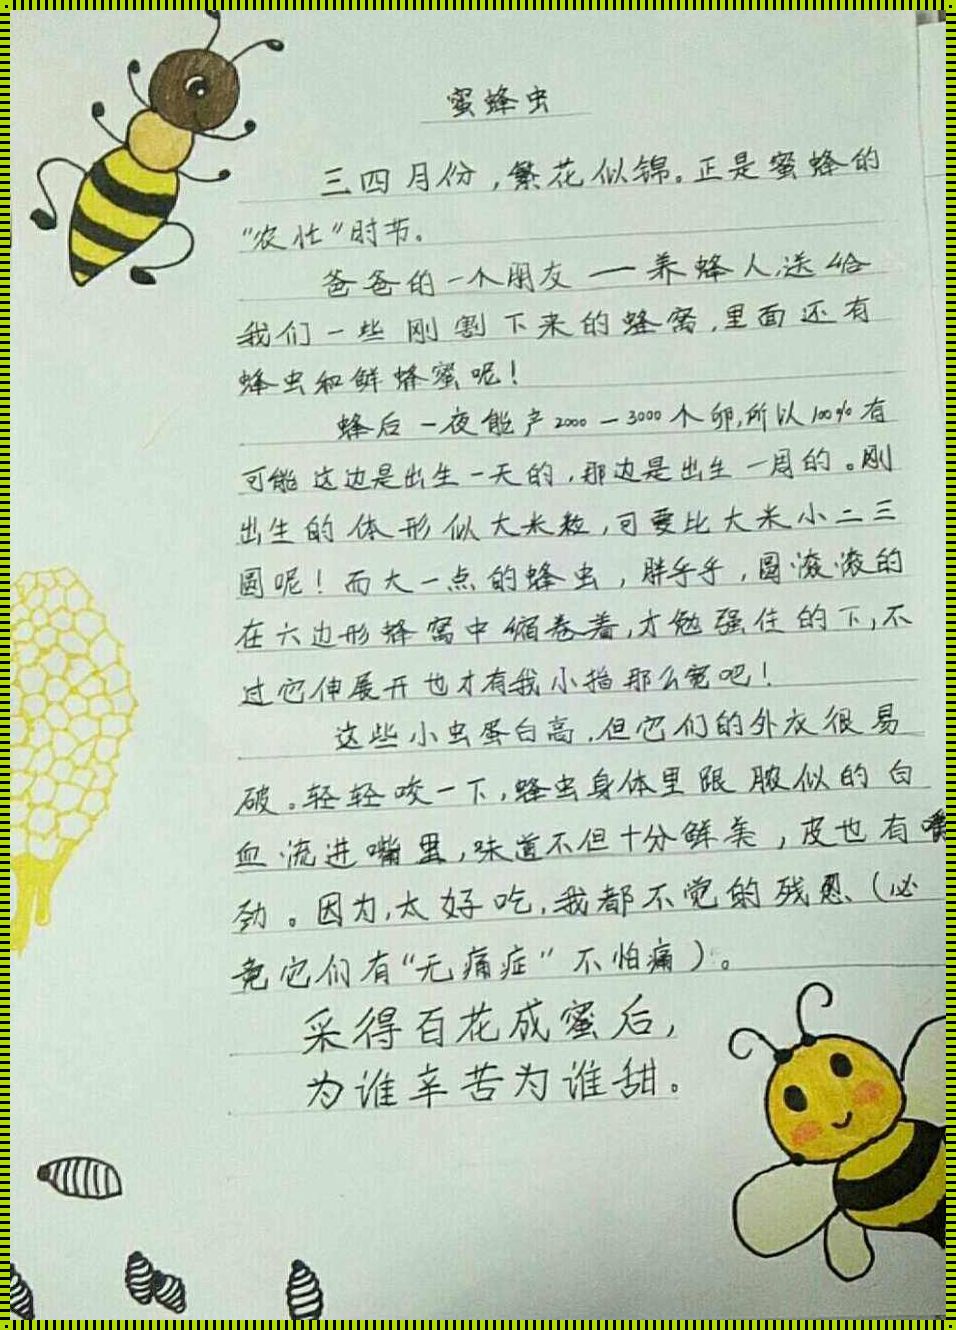 蜜蜂虫
三四月份，繁花似锦。正是蜜蜂的
“农忙”时节。
爸爸的一个朋友——养蜂人，送给
我们一些刚割下来的蜂窝，里面还有
蜂虫和鲜蜂蜜呢！
蜂后一夜能产2000—3000个卵，所以100%有
可能这边是出生一天的，那边是出生一周的。刚
出生的体形似大米粒，可要比大米小二三
圆呢！而大一点的蜂虫，胖乎乎，圆滚滚的
在六边形蜂窝中缩卷着，才勉强住的下，不
过它伸展开也才有我小指那么宽吧！
这些小虫蛋白高，但它们的外衣很易
破。轻轻咬一下，蜂虫身体里跟脓似的白
血流进嘴里，味道不但十分鲜美，皮也有嚼
劲。因为，太好吃，我都不觉的残忍（必
竟它们有“无痛症”不怕痛）。
采得百花成蜜后，
为谁辛苦为谁甜。